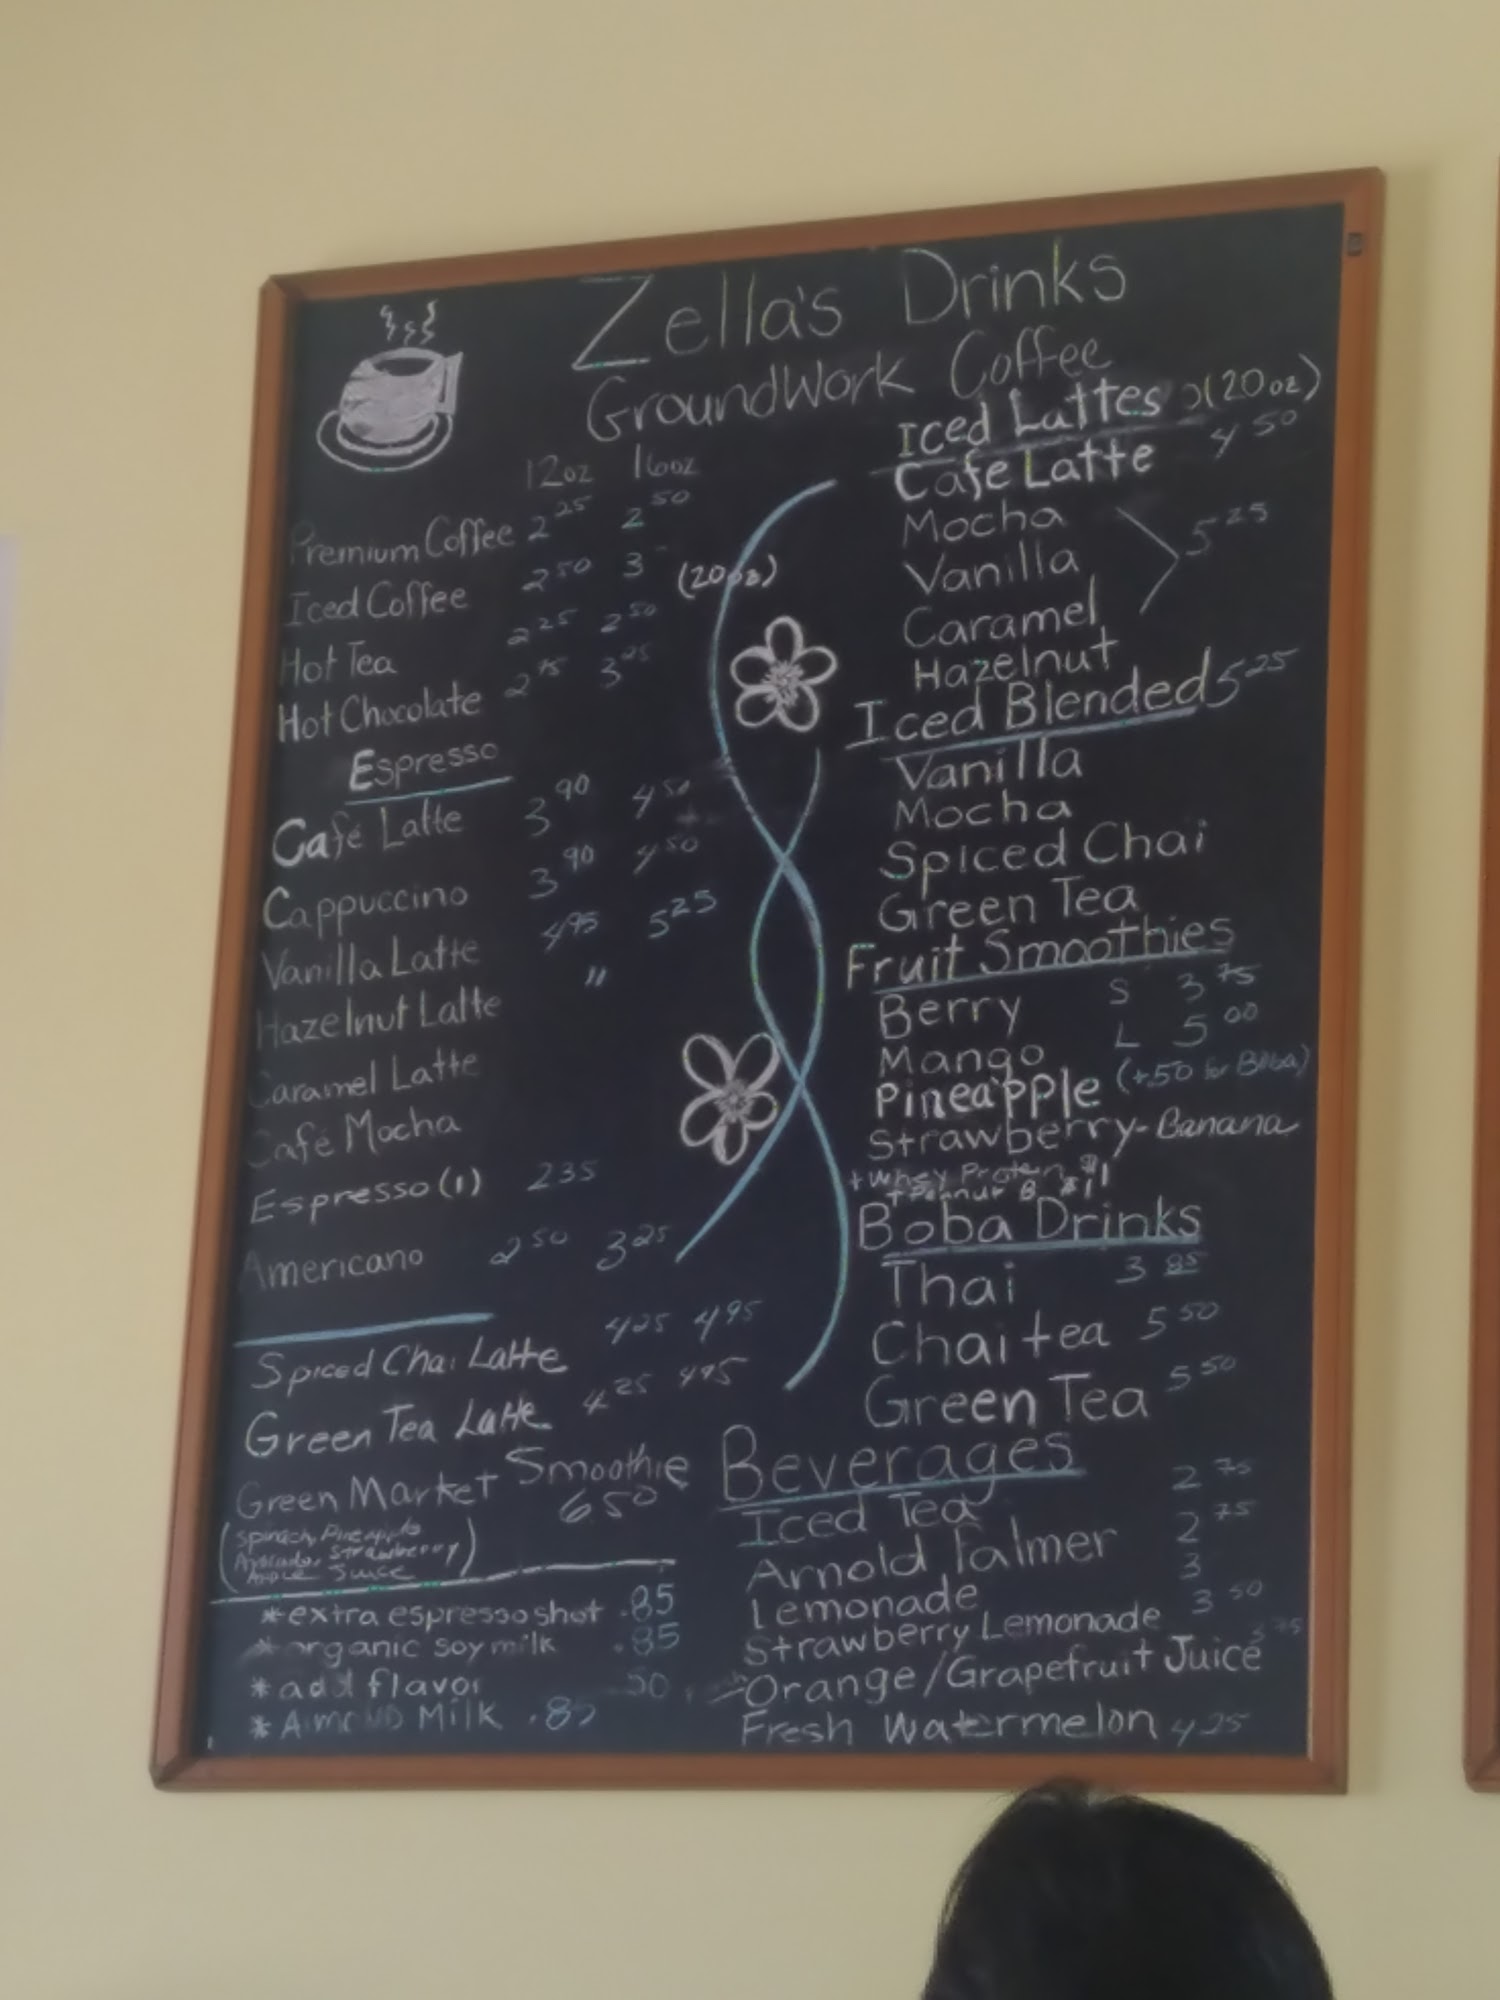 Zella's Drinks
GroundWork Coffee
12oz 16oz
Premium Coffee 2 25 2 50
Iced Coffee 2 50 3 - (20oz)
Hot Tea 2 25 2 50
Hot Chocolate 2 75 3 25
Espresso
Café Latte 3 90 4 50
Cappuccino 3 90 4 50
Vanilla Latte 4 95 5 25
Hazelnut Latte "
Caramel Latte
Café Mocha
Espresso (1) 2 35
Americano 2 50 3 25
Spiced Chai Latte 4 25 4 95
Green Tea Latte 4 25 4 95
Green Market Smoothie
6 50
(Spinach, Pineapple
Avocado, Strawberry
Apple Juice)
*extra espresso shot .85
*organic soy milk .85
*add flavor 50
*Almond Milk .85
Iced Lattes (20oz)
Cafe Latte 4 50
Mocha
Vanilla 5 25
Caramel
Hazelnut
Iced Blended 5 25
Vanilla
Mocha
Spiced Chai
Green Tea
Fruit Smoothies
Berry S 3 75
Mango L 5 00
Pineapple (+.50 for Boba)
Strawberry-Banana
+Whey Protein $1
+Peanut B. $1
Boba Drinks
Thai 3 85
Chai tea 5 50
Green Tea 5 50
Beverages
Iced Tea 2 75
Arnold Palmer 2 75
Lemonade 3
Strawberry Lemonade 3 50
Orange/Grapefruit Juice 3 75
Fresh Watermelon 4 25